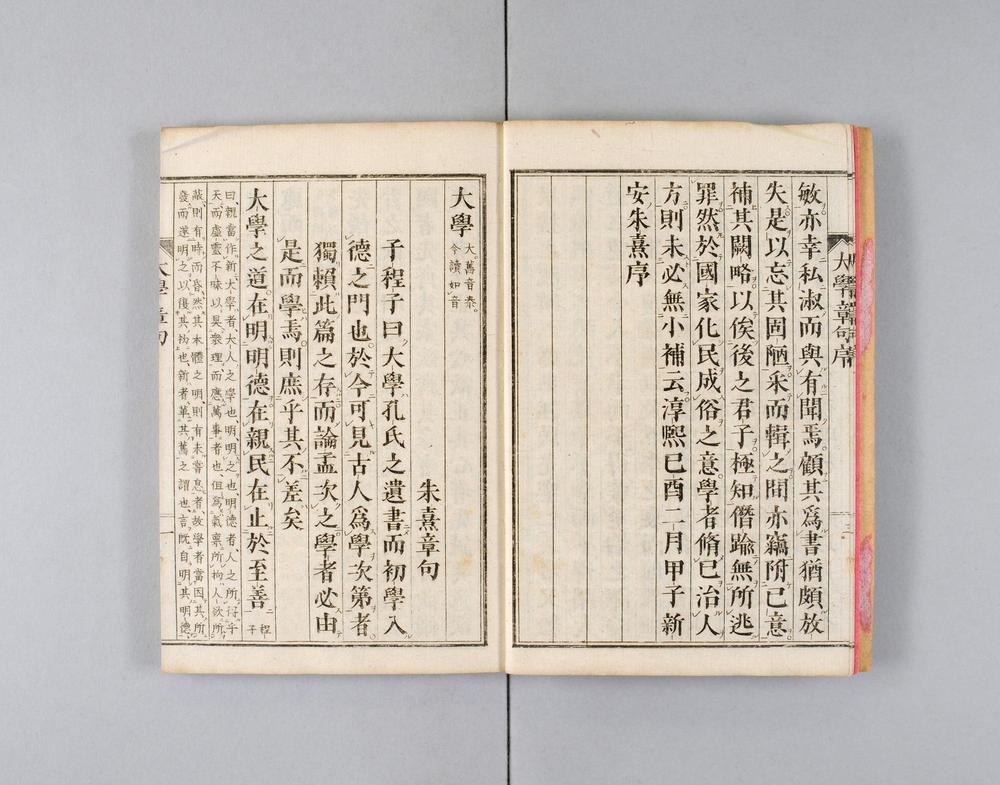 大學章句序
敏亦幸私淑而與有聞焉顧其爲書猶頗放
失是以忘其固陋采而輯之間亦竊附己意
補其闕略以俟後之君子極知僭踰無所逃
罪然於國家化民成俗之意學者脩己治人
方則未必無小補云淳熙己酉二月甲子新
安朱熹序
大學
大舊音泰
今讀如音
朱熹章句
子程子曰大學孔氏之遺書而初學入
德之門也於今可見古人爲學次第者
獨賴此篇之存而論孟次之學者必由
是而學焉則庶乎其不差矣
大學之道在明明德在親民在止於至善
程
子
曰親當作新大學者大人之學也明明之也明德者人之所得乎
天而虛靈不昧以具衆理而應萬事者也但爲氣稟所拘人欲所
蔽則有時而昏然其本體之明則有未嘗息者故學者當因其所
發而遂明之以復其初也新者革其舊之謂也言旣自明其明德
大學章句
一